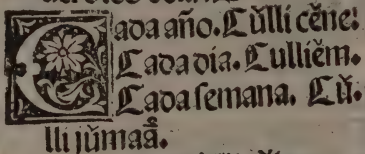 Cada año. Cŭlli cĕne:
Cada dia. Culliĕm.
Cada semana. Cŭ.
lli jŭmaå.